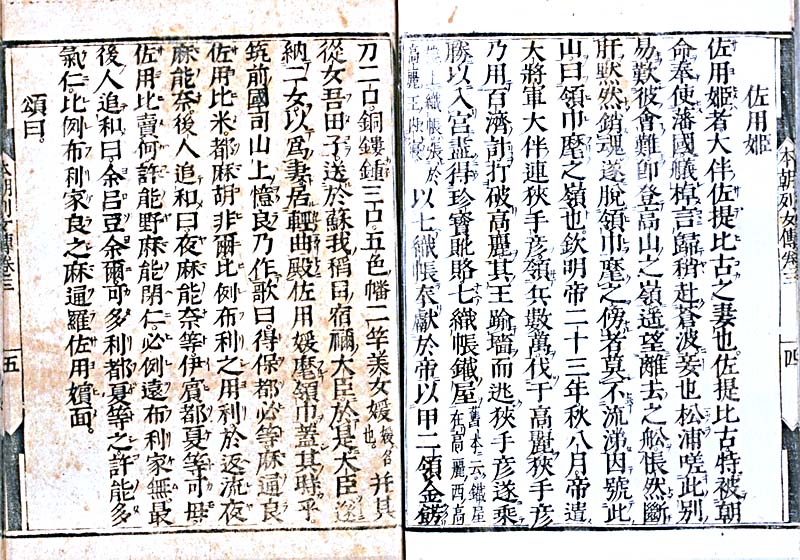 本朝列女傳卷三
四
佐用姫
佐用姫者大伴佐提比古之妻也。佐提比古特被朝
命奉使潘國艤棹言歸稍赴蒼波妾也松浦嗟此別
易歎彼會難即登高山之嶺遥望離去之舩悵然斷
肝黙然銷魂遂脱領巾麾之傍者莫不流涕因號此
山曰領巾麾之嶺也。欽明帝二十三年秋八月帝遣
大將軍大伴連狹手彦領兵數萬伐于高麗狹手彦
乃用百濟計打破高麗其王踰墻而逃狹手彦遂乗
勝以入宮盡得珍寳貤賂七織帳鐵屋舊本云鐵屋在高麗西高
樓上織帳張於高麗王内寢以七織帳奉獻於帝以甲二領金錺
刀二口。銅鏤鍾三口。五色幡二竿美女媛媛名也。并其
從女吾田子。送於蘇我稲目宿禰大臣於是大臣遂
納二女以爲妻居輕曲殿佐用媛麾領巾蓋其時乎
筑前國司山上憶良乃作歌曰。得保都必等麻通良
佐用比米。都麻胡非爾比例布利之用利於返流夜
麻能奈後人追和曰。夜麻能奈等。伊賓都夏等可母
佐用比賣何許能野麻能閇仁。必例遠布利家無最
後人追和曰。余呂豆余爾可多利都夏等之許能多
氣仁。比例布利家良之麻通羅佐用嬪面。
頌曰。
本朝列女傳卷三
五